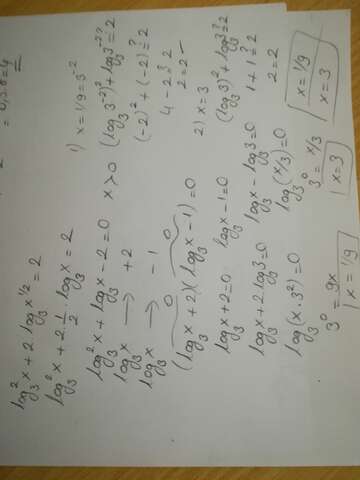 = 0,5.8 = 4
log₃²x + 2 log₃x^1/2 = 2
log₃²x + 2 · 1/2 · log₃x = 2
log₃²x + log₃x - 2 = 0   x > 0
log₃x → + 2
log₃x → - 1
(log₃x + 2)(log₃x - 1) = 0
0   0
log₃x + 2 = 0   log₃x - 1 = 0
log₃x + 2 log₃3 = 0   log₃x - log₃3 = 0
log₃(x · 3²) = 0   log₃(x/3) = 0
3⁰ = 9x   3⁰ = x/3
x = 1/9   x = 3
1) x = 1/9 = 3⁻²
(log₃3⁻²)² + log₃3⁻² ≟ 2
(-2)² + (-2) ≟ 2
4 - 2 ≟ 2
2 = 2
2) x = 3
(log₃3)² + log₃3 ≟ 2
1 + 1 ≟ 2
2 = 2
x = 1/9
x = 3